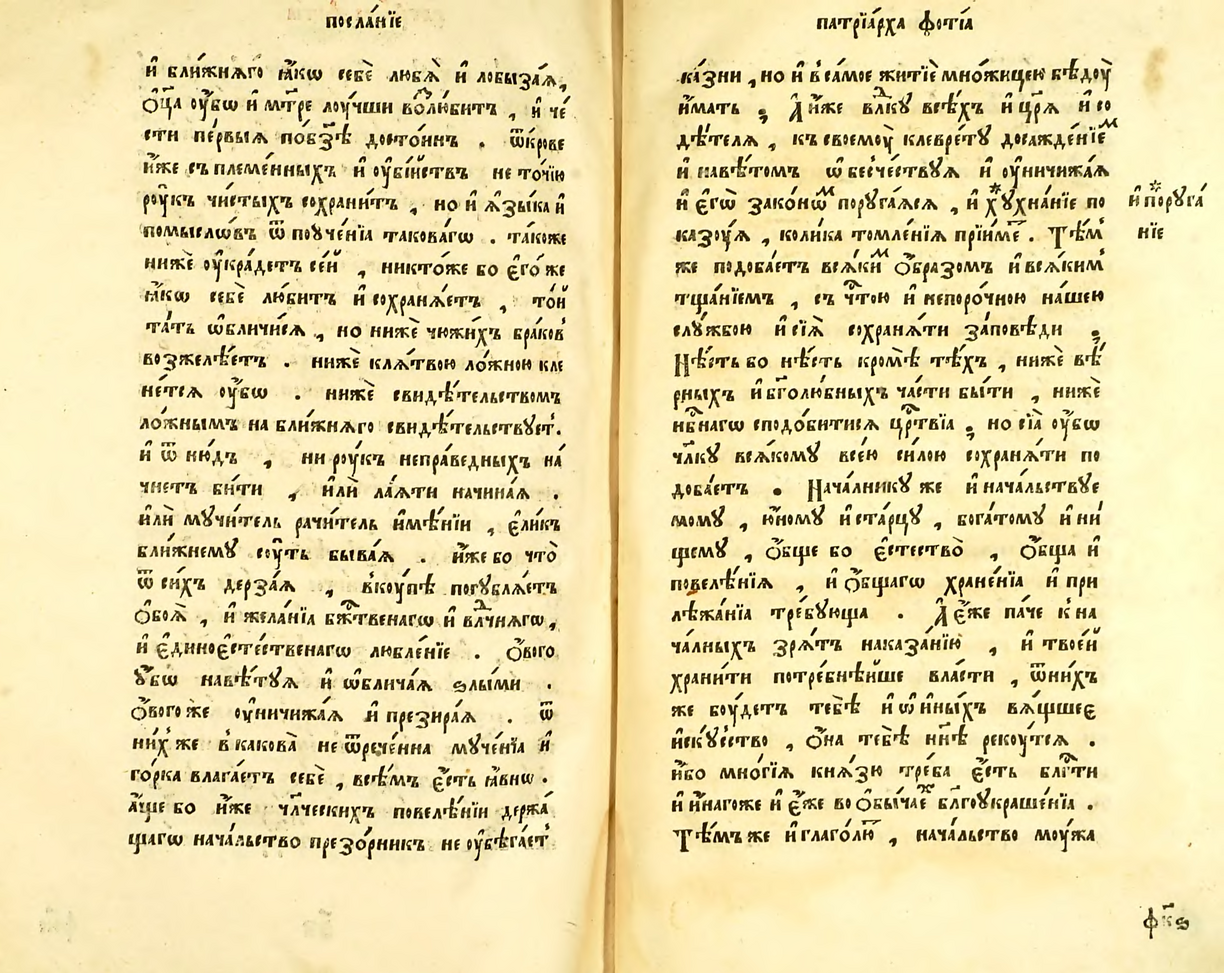 посла́нїе
и҆ бли́жнѧго ꙗ҆́кѡ себѐ любѧ̀ и҆ лобыза́ѧ,
ѻ҆ц҃а ᲂу҆́бѡ и҆ мт҃ре лꙋ́чши во́злюбитъ , и҆ че́
сти пе́рвыѧ по бз҃ѣ досто́инъ . ѿ кро́ве
и҆́же съпле́менныхъ и҆ ᲂу҆бі́йствъ не то́чїю
рꙋ́къ чи́стыхъ сохрани́тъ , но и҆ ѧ҆зы́ка и҆
по́мыслѡвъ ѿ поуче́нїа такова́гѡ . та́коже
нижѐ ᲂу҆кра́детъ се́й , никто́же бо є҆го́же
ꙗ҆́кѡ себѐ лю́битъ и҆ сохранѧ́етъ , то́й
та́ть ѡ҆бличи́сѧ , но нижѐ чюжи́хъ бра́ков̾
возжелѣ́етъ . нижѐ клѧ́твою ло́жною кле
не́тсѧ ᲂу҆́бѡ . нижѐ свидѣ́тельствомъ
ло́жнымъ на бли́жнѧго свидѣ́тельствꙋет̾.
и҆ ѿ ню́дъ , ни рꙋ́къ непра́ведныхъ на́
чнетъ би́ти , и҆лѝ ла́ѧти начина́ѧ .
и҆лѝ мꙋчи́тель рачи́тель и҆мѣ́нїи , є҆ли́къ
бли́жнемꙋ сꙋ́ть быва́ѧ . и҆́же бо что̀
ѿ си́хъ дерза́ѧ , вкꙋ́пѣ погублѧ́етъ
ѻ҆боѧ̀ , и҆ жела́нїа бж҃твенагѡ и҆ влⷣчнѧгѡ,
и҆ є҆диноєсте́ственагѡ любле́нїе . ѻ҆́вого
ᲂу҆́бѡ навѣ́тꙋѧ и҆ ѡ҆блича́ѧ ѕлы́ми .
ѻ҆́вого же ᲂу҆ничижа́ѧ и҆ презира́ѧ . ѿ
ни́хже в какова̀ не ѿрече́нна мꙋче́нїа и҆
го́рка влага́етъ себѐ , всѣ́мъ є҆́сть ꙗ҆́внѡ .
а҆́ще бо и҆́же чл҃ческихъ повелѣ́нїи держа́
щагѡ нача́льство презо́рникъ не ᲂу҆бѣга́ет̾
патрїа́рха фотїа
ка́зни , но и҆ в са́мое житїѐ мно́жицею бѣдꙋ̀
и҆́мать ; А҆ и҆́же влⷣкꙋ всѣ́хъ и҆ цр҃ѧ и҆ со
дѣ́телѧ , къ своемꙋ̀ клевре́тꙋ досажде́нїеⷨ
и҆ навѣ́томъ ѡ҆бесче́ствꙋѧ и҆ ᲂу҆ничижа́ѧ
и҆ є҆гѡ̀ зако́нѡⷨ порꙋга́ѧсѧ , и҆ *хꙋхна́нїе по
казꙋ́ѧ , коли́ка томле́нїѧ прїи́ме . Тѣ́м̾
же подоба́етъ всѧ́киⷨ ѻ҆́бразомъ и҆ всѧ́ким̾
тща́нїемъ , съ чⷭ҇тою и҆ непоро́чною на́шею
слꙋ́жбою и҆ сїѧ̀ сохранѧ́ти за́повѣди ;
Нѣ́сть бо нѣ́сть кромѣ̀ тѣ́хъ , нижѐ вѣ́
рныхъ и҆ бг҃олю́бныхъ ча́сти бы́ти , нижѐ
нбⷭ҇нагѡ сподо́битисѧ црⷭ҇твїа ; но сїа̀ ᲂу҆́бѡ
чл҃кꙋ всѧ́комꙋ все́ю си́лою сохранѧ́ти по
доба́етъ . Нача́лникꙋ же и҆ нача́льствꙋе
момꙋ , ю҆́номꙋ и҆ ста́рцꙋ , бога́томꙋ и҆ ни́
щемꙋ , ѻ҆́бще бо є҆стество̀ , ѻ҆́бща и҆
повелѣ́нїѧ , и҆ ѻ҆́бщагѡ хране́нїа и҆ при
лѣжа́нїа тре́бꙋюща . А҆ є҆́же па́че к на
ча́лныхъ зрѧ́тъ наказа́нїю , и҆ твое́й
храни́ти потре́бнѣйше вла́сти , ѿ ни́хъ
же бꙋ́детъ тебѣ̀ и҆ ѡ҆ и҆ны́хъ вѧ́щшеє
и҆скꙋ́сство , ѻ҆на̀ тебѣ̀ нн҃ѣ рекꙋ́тсѧ .
и҆́бо мно́гїѧ кнѧ́зю тре́ба є҆́сть блгⷣти
и҆ и҆на́гоже и҆ є҆́же во ѻ҆бы́чаеⷯ бл҃гоукраше́нїа .
Тѣ́мъже и҆ глаго́лю , нача́льство мꙋ́жа
* и҆ порꙋга́
нїе
фк҃ѕ